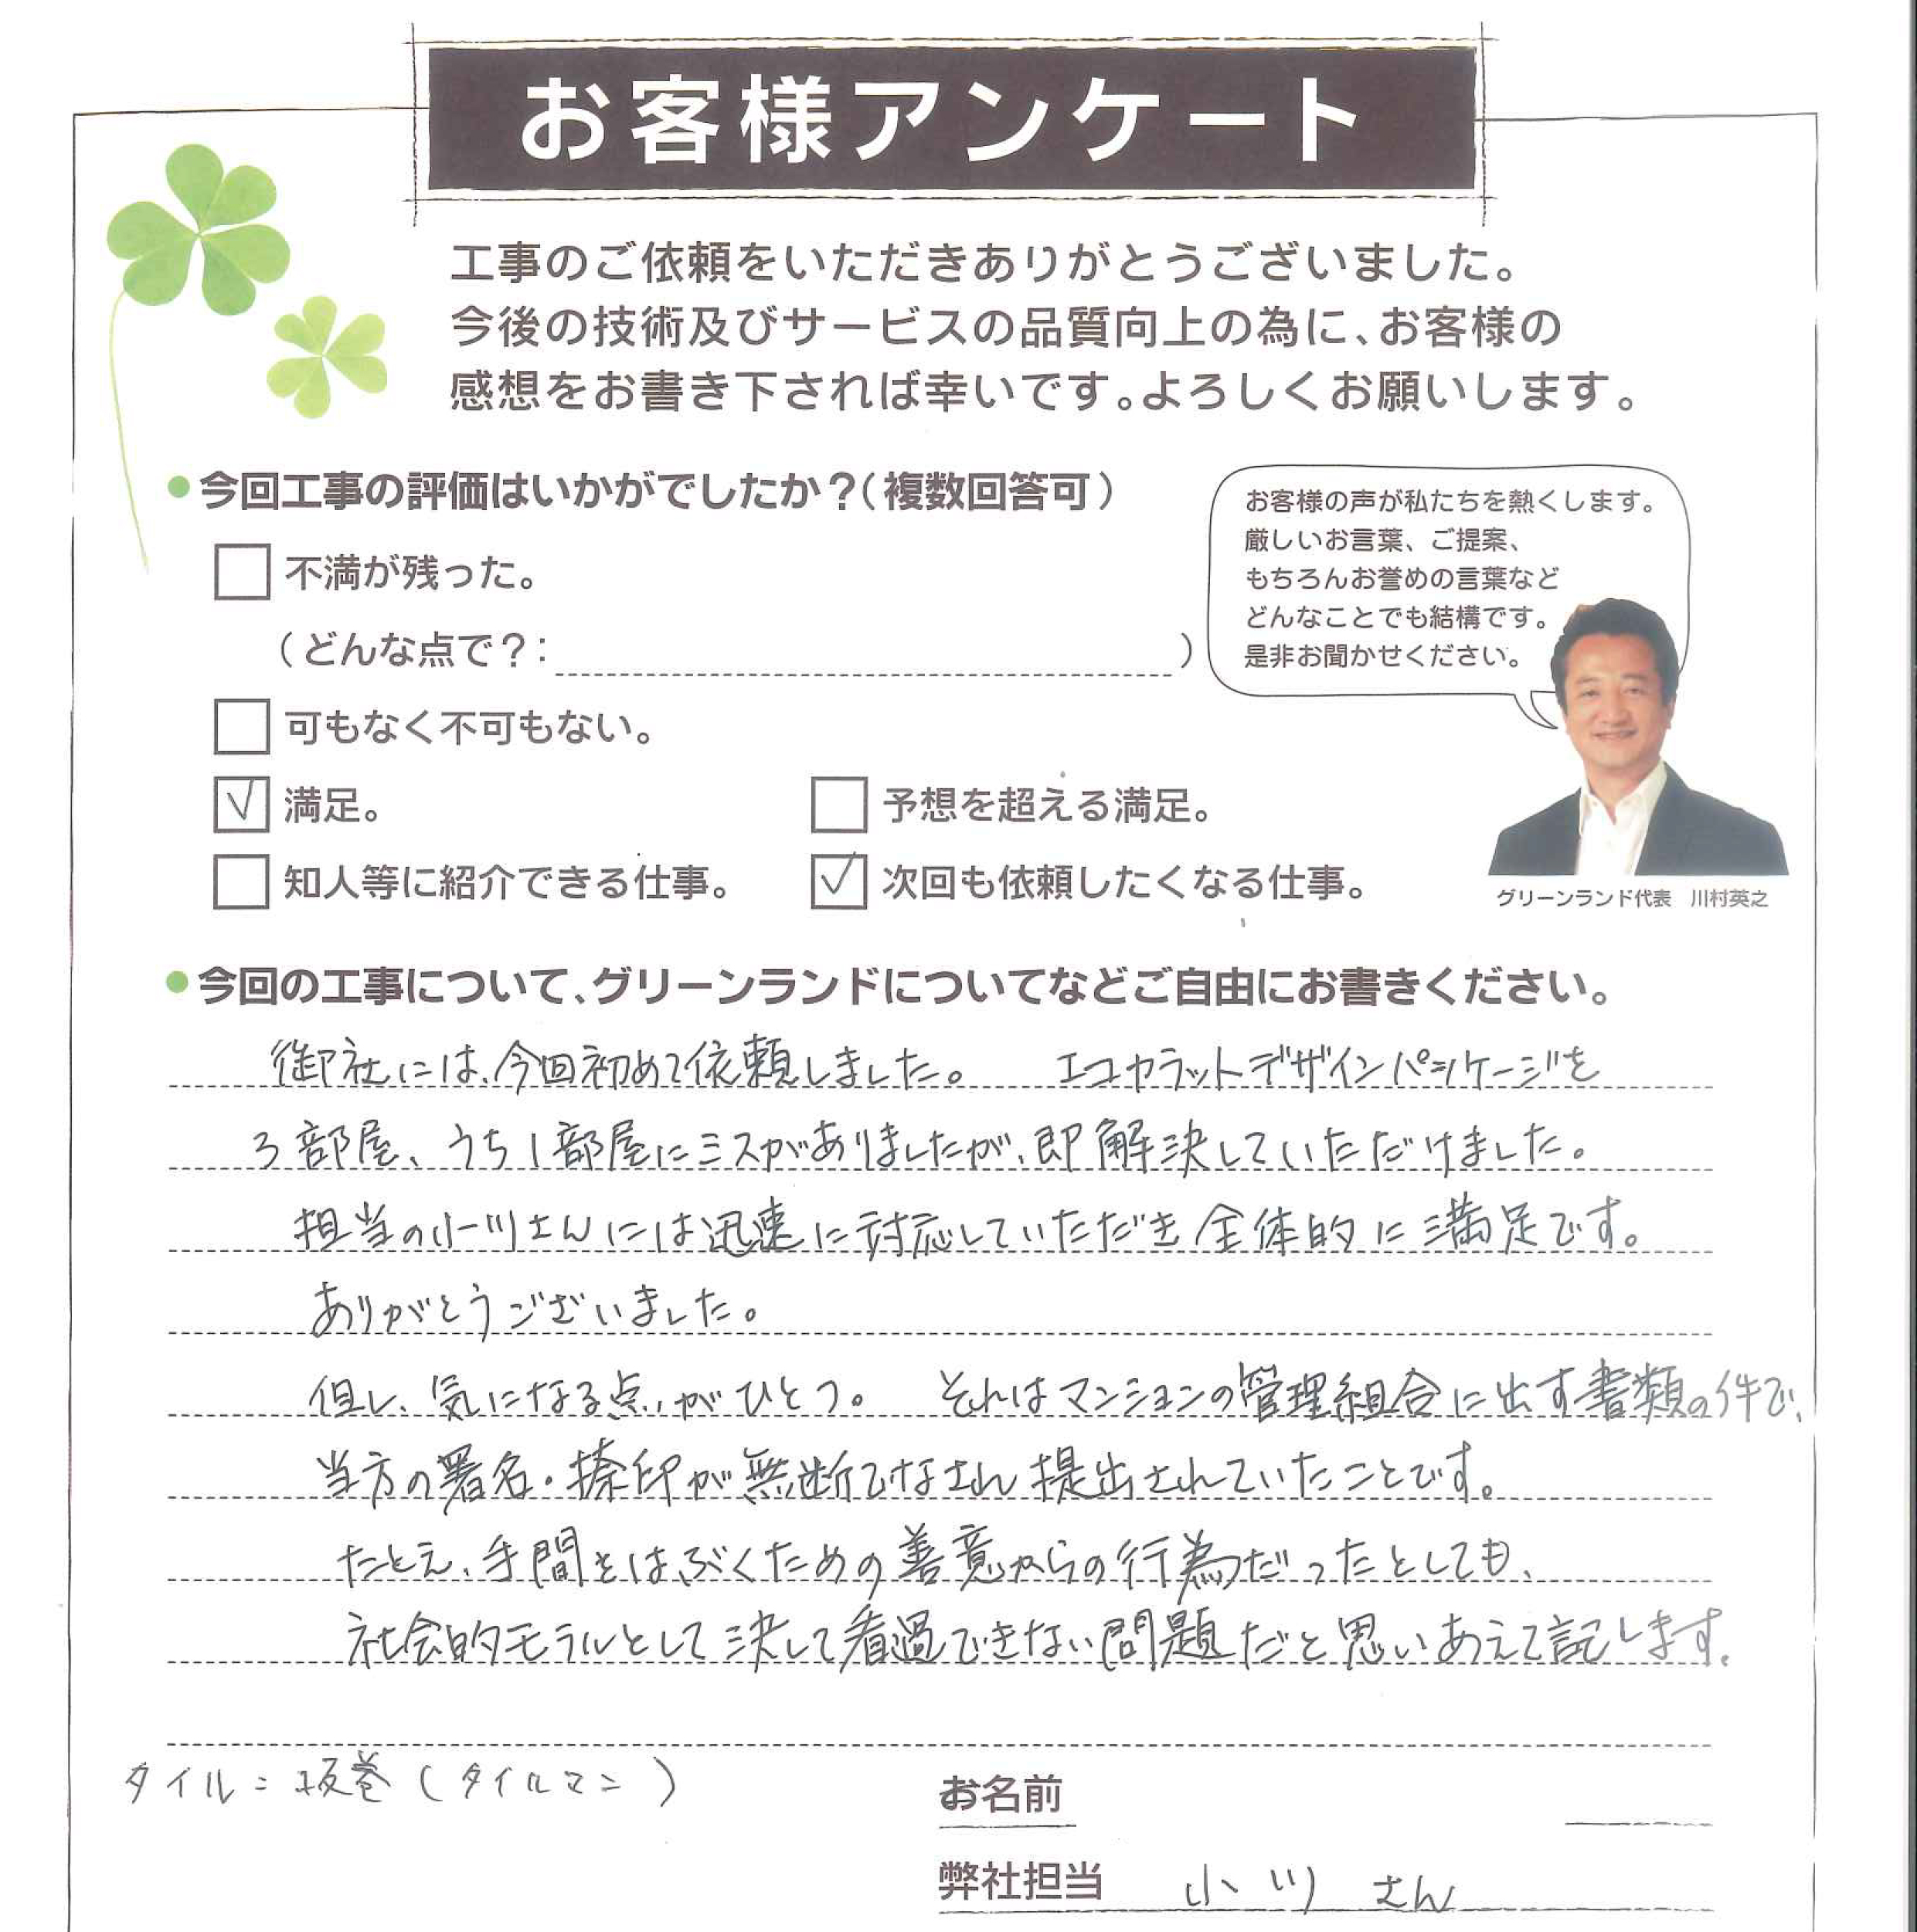 お客様アンケート
工事のご依頼をいただきありがとうございました。
今後の技術及びサービスの品質向上の為に、お客様の
感想をお書き下されば幸いです。よろしくお願いします。
●今回工事の評価はいかがでしたか?(複数回答可)
お客様の声が私たちを熱くします。
厳しいお言葉、ご提案、
もちろんお誉めの言葉など
どんなことでも結構です。
是非お聞かせください。
不満が残った。
(どんな点で?: )
可もなく不可もない。
✓ 満足。
予想を超える満足。
知人等に紹介できる仕事。
✓ 次回も依頼したくなる仕事。
グリーンランド代表 川村英之
●今回の工事について、グリーンランドについてなどご自由にお書きください。
御社には、今回初めて依頼しました。 エコカラットデザインパッケージを
3部屋、うち1部屋にミスがありましたが、即解決していただけました。
担当の小川さんには迅速に対応していただき全体的に満足です。
ありがとうございました。
但し、気になる点がひとつ。 それはマンションの管理組合に出す書類の件で、
当方の署名・捺印が無断でなされ提出されていたことです。
たとえ、手間をはぶくための善意からの行為だったとしても、
社会的モラルとして決して看過できない問題だと思いあえて記します。
タイル:坂巻(タイルマン)
お名前
弊社担当 小川 さん